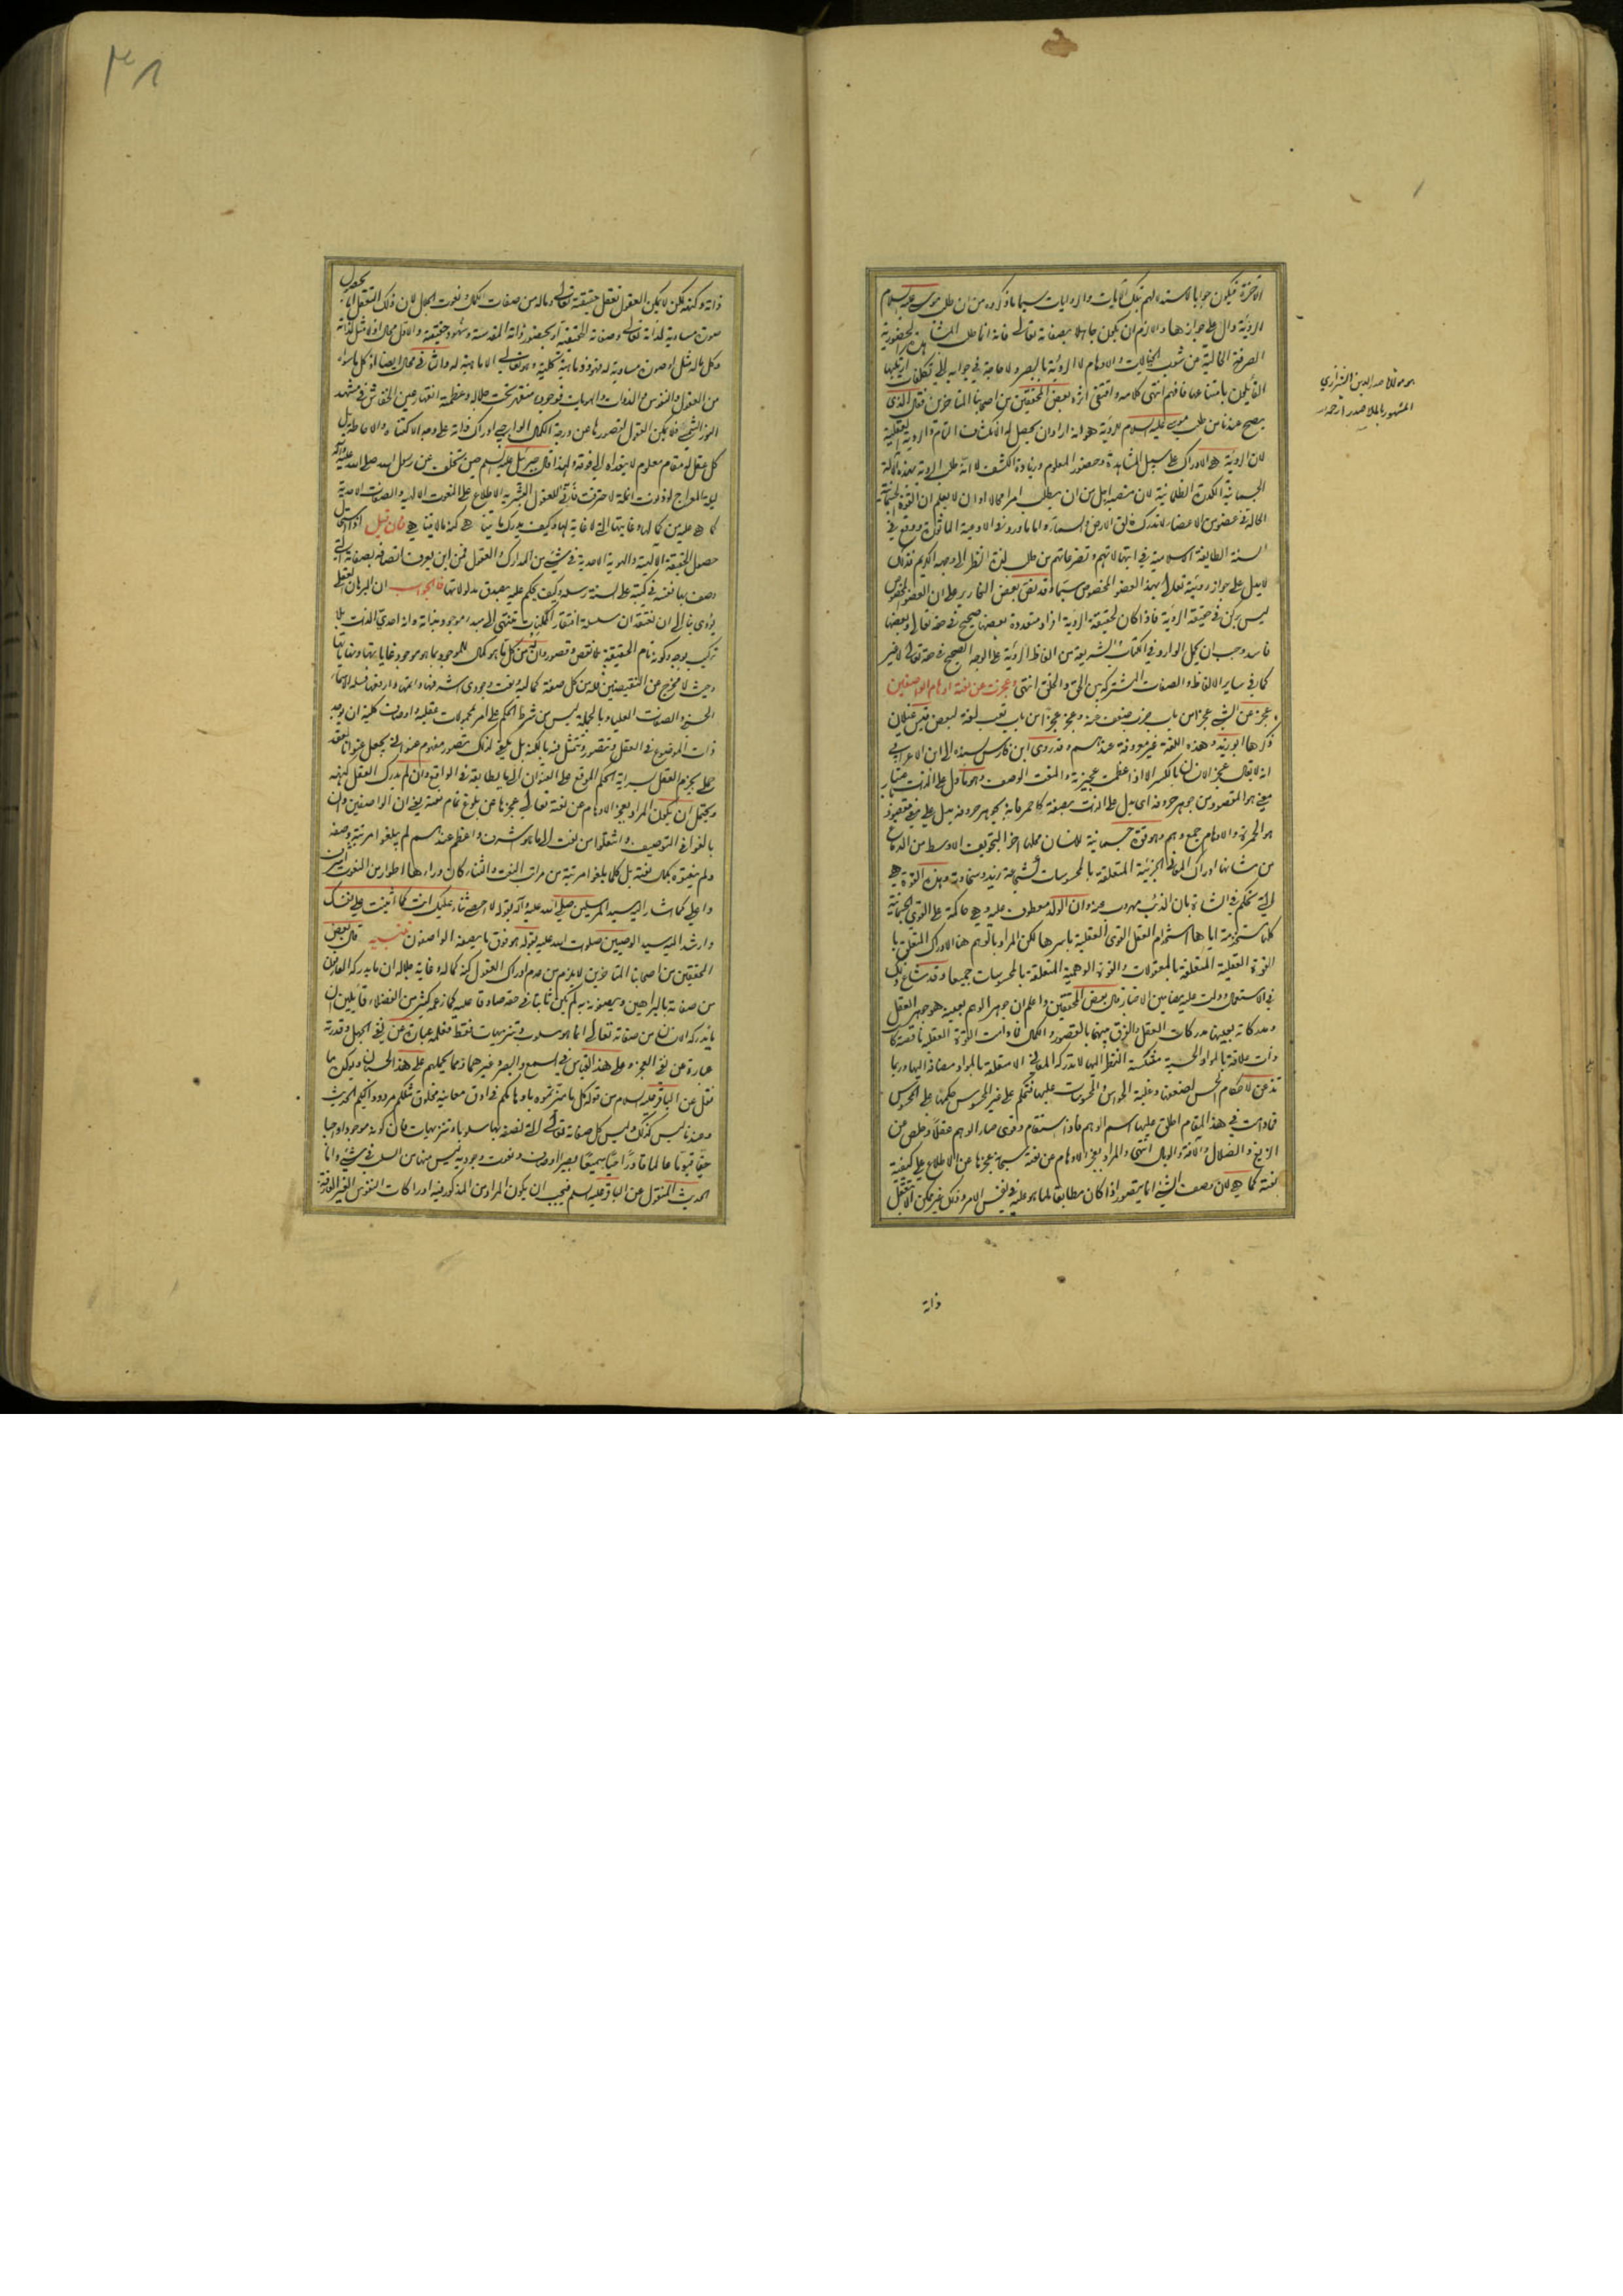 الآخرة فيكون جوابا لاستدلالهم بتلك الآيات والروايات سيما ما ذكروه من ان طلب موسى عليه السلام
الرؤية دال على جوازها والا لزم ان يكون جاهلا بصفاته تعالى فانه انما طلب المشاهدة الحضورية
الصرفة الخالية عن شوب الخيالات والاوهام لا الرؤية بالبصر ولا حاجة في جوابه الى تكلفات ارتكبها
القايلون بامتناعها فافهم انتهى كلامه واقتفى اثره بعض المحققين من اصحابنا المتاخرين فقال الذى
يصح عندنا من طلب موسى عليه السلام للرؤية هو انه اراد ان يحصل له الانكشاف التام والرؤية العقلية
لان الرؤية هى الادراك على سبيل المشاهدة وحضور المعلوم وزيادة الكشف لا انه طلب الرؤية بهذه الآلة
الجسمانية الكدرة الظلمانية لان منصبه اجل من ان يطلب امرا محالا او ان لا يعلم ان القوة الجسمانية
الحالة في عضو من الاعضاء لا تدرك خالق الارض والسماء واما ما ورد في الادعية الماثورة ووقع في
السنة الطايفة الاسلامية في ابتهالاتهم وتضرعاتهم من طلب لذة النظر الى وجهه الكريم فذلك
لا يدل على جواز رؤيته تعالى بهذا العضو المخصوص سيما وقد نص بعض النحارير على ان العضو المخصوص
ليس بركن في حقيقة الرؤية فاذا كان لحقيقة الرؤية افراد متعددة بعضها صحيح في حقه تعالى وبعضها
فاسد وجب ان يحمل الوارد في الكتاب الشريعة من الفاظ الرؤية على الوجه الصحيح في حقه تعالى لا غير
كما في ساير الالفاظ والصفات المشتركة بين الحق والخلق انتهى وعجزت عن نعته اوهام الواصفين
عجز عن الشىء عجزا من باب ضرب ضعف عنه وعجز عجزا من باب تعب لغة لبعض قيس عيلان
ذكرها ابو زيد وهذه اللغة غير معروفة عندهم وقد روى ابن فارس بسنده الى ابن الاعرابي
انه لا يقال عجز الانسان بالكسر الا اذا عظمت عجيزته والنعت الوصف وهو ما دل على الذات باعتبار
معنى هو المقصود من جوهر حروفه اى يدل على الذات بصفة كاحمر فانه بجوهر حروفه يدل على معنى مقصود
هو الحمرة والاوهام جمع وهم وهو قوة جسمانية للانسان محلها آخر التجويف الاوسط من الدماغ
من شانها ادراك المعاني الجزئية المتعلقة بالمحسوسات كشجاعة زيد وسخاوته وهذه القوة هى
التى تحكم في الشاة بان الذئب مهروب عنه وان الولد معطوف عليه وهى حاكمة على القوى الجسمانية
كلها مستخدمة اياها استخدام العقل القوى العقلية باسرها لكن المراد بالوهم هنا الادراك المتعلق با
القوة العقلية المتعلقة بالمعقولات والقوة الوهمية المتعلقة بالمحسوسات جميعا وقد شاع ذلك
في الاستعمال ودلت عليه مضامين الاخبار قال بعض المحققين واعلم ان جوهر الوهم بعينه هو جوهر العقل
ومدركاته بعينها مدركات العقل والفرق بينهما بالقصور والكمال فما دامت القوة العقلية ناقصة كانت
ذات علاقة بالمواد الحسية منتكسة النظر اليها لا تدرك المعاني الا متعلقة بالمواد مضافة اليها وربما
تذعن لاحكام الحس لضعفها وغلبة الحواس والمحسوسات عليها فتحكم على غير المحسوس حكمها على المحسوس
فما دامت في هذا المقام اطلق عليها اسم الوهم فاذا استقام وقوى صار الوهم عقلا وخلص من
الزيغ والضلال والآفة والوبال انتهى والمراد بعجز الاوهام عن نعته سبحانه عجزها عن الاطلاع على كيفية
نعته كما هى لان وصف الشىء انما يتصور اذا كان مطابقا لما هو عليه في نفس الامر وذلك غير ممكن الا بتعقل
ذاته
هو مولانا صدر الدين الشيرازي
المشهور بالملا صدرا رحمه الله
٣١
ذاته وكنهه لكن لا يمكن للعقول تعقل حقيقته تعالى وما له من صفات الكمال ونعوت الجلال لان ذلك التعقل اما بحصول
صورة مساوية لذاته تعالى وصفاته الحقيقية او بحضور ذاته المقدسة وشهود حقيقته والاول محال اذ لا مثل لذاته
وكل ما له مثل او صورة مساوية له فهو ذو ماهية كلية وهو تعالى لا ماهية له والثاني محال ايضا اذ كل ما سواه
من العقول والنفوس والذوات والهويات فوجوده منقهر تحت جلاله وعظمته انقهار عين الخفاش في مشهد
النور الشمسي فلا يمكن للعقول لقصورها عن درجة الكمال الواجبي ادراك ذاته على وجه الاكتناه والاحاطة بل
كل عقل له مقام معلوم لا يتعداه الى فوقه ولهذا قال جبرئيل عليه السلم حين تخلف عن رسول الله صلى الله عليه وآله
ليلة المعراج لو دنوت انملة لاحترقت فانى للعقول البشرية الاطلاع على النعوت الالهية والصفات الاحدية
كما هى عليه من كمالها وغايتها التى لا غاية لها وكيف يدرك بما يتناهى كنه ما لا يتناهى فان قيل اذا استحال
حصول الحقيقة الالهية والهوية الاحدية في شىء من المدارك والعقول فمن اين يعرف اتصافه بصفاته التى
وصف بها نفسه في كتبه على السنة رسله وكيف يحكم عليه بصدق مدلولاتها فالجواب ان البرهان العقلي
يؤدى بنا الى ان نعتقد ان سلسلة افتقار الممكنات تنتهى الى مبدء موجود بذاته وانه احدي الذات بلا
تركب بوجه وكونه تام الحقيقة بلا نقص وقصور وان له من كل ما هو كمال للموجود بما هو موجود غاياتها ونهاياتها
وحيث لا مخرج عن النقيضين فله من كل صفة كمالية نعت وجودى اشرفها واتمها وارفعها فله الاسماء
الحسنى والصفات العليا وبالجملة ليس من شرط الحكم على امر بمحمولات عقلية واوصاف كلية ان يوجد
ذات الموضوع في العقل ويتصور ويتمثل فيه بالكنه بل يكفى لذلك تصور مفهوم عنوانى يجعل عنوانا لعقد
حملى يجزم العقل بسراية الحكم الموقع على العنوان الى ما يطابقه في الواقع وان لم يدرك العقل كنهه
ويحتمل ان يكون المراد بعجز الاوهام عن نعته تعالى عجزها عن بلوغ تمام نعته يعنى ان الواصفين وان
بالغوا في التوصيف وانتقلوا من نعت الى ما هو اشرف واعظم عندهم لم يبلغوا مرتبة وصفه
ولم ينعتوه بكمال نعته بل كلما بلغوا مرتبة من مراتب النعت والثناء كان وراءها اطوار من النعوت اشرف
واعلى كما اشار اليه سيد المرسلين صلى الله عليه وآله بقوله لا احصى ثناء عليك انت كما اثنيت على نفسك
وارشد اليه سيد الوصيين صلوات الله عليه بقوله هو فوق ما يصفه الواصفون تنبيه قال بعض
المحققين من اصحابنا المتاخرين لا يلزم من عدم ادراك العقول كنه كماله وغاية جلاله ان ما يدركه العارفون
من صفاته بالبراهين ويصفونه به لم يكن ثابتا في حقه صادقا عليه كما زعمه كثير من الفضلاء قائلين ان
ما يدركه الانسان من صفاته تعالى انما هو سلوب وتنزيهات فقط فعلمه عبارة عن نفى الجهل وقدرته
عبارة عن نفى العجز وعلى هذا القياس في السمع والبصر وغيرهما وما يحملهم على هذا الحسبان ويؤكده ما
نقل عن الباقر عليه السلام من قوله كل ما ميزتموه باوهامكم في ادق معانيه مخلوق مثلكم مردود اليكم الحديث
وعندنا ليس كذلك وليس كل صفاته تعالى التى نصفه بها سلوبا وتنزيهات فان كونه موجودا واجبا
حقا قيوما عالما قادرا حيا سميعا بصيرا اوصاف ونعوت وجودية ليس منها من السلب في شىء واما
الحديث المنقول عن الباقر عليه السلم فيجب ان يكون المراد من المذكور فيه ادراكات النفوس الغير العارفة